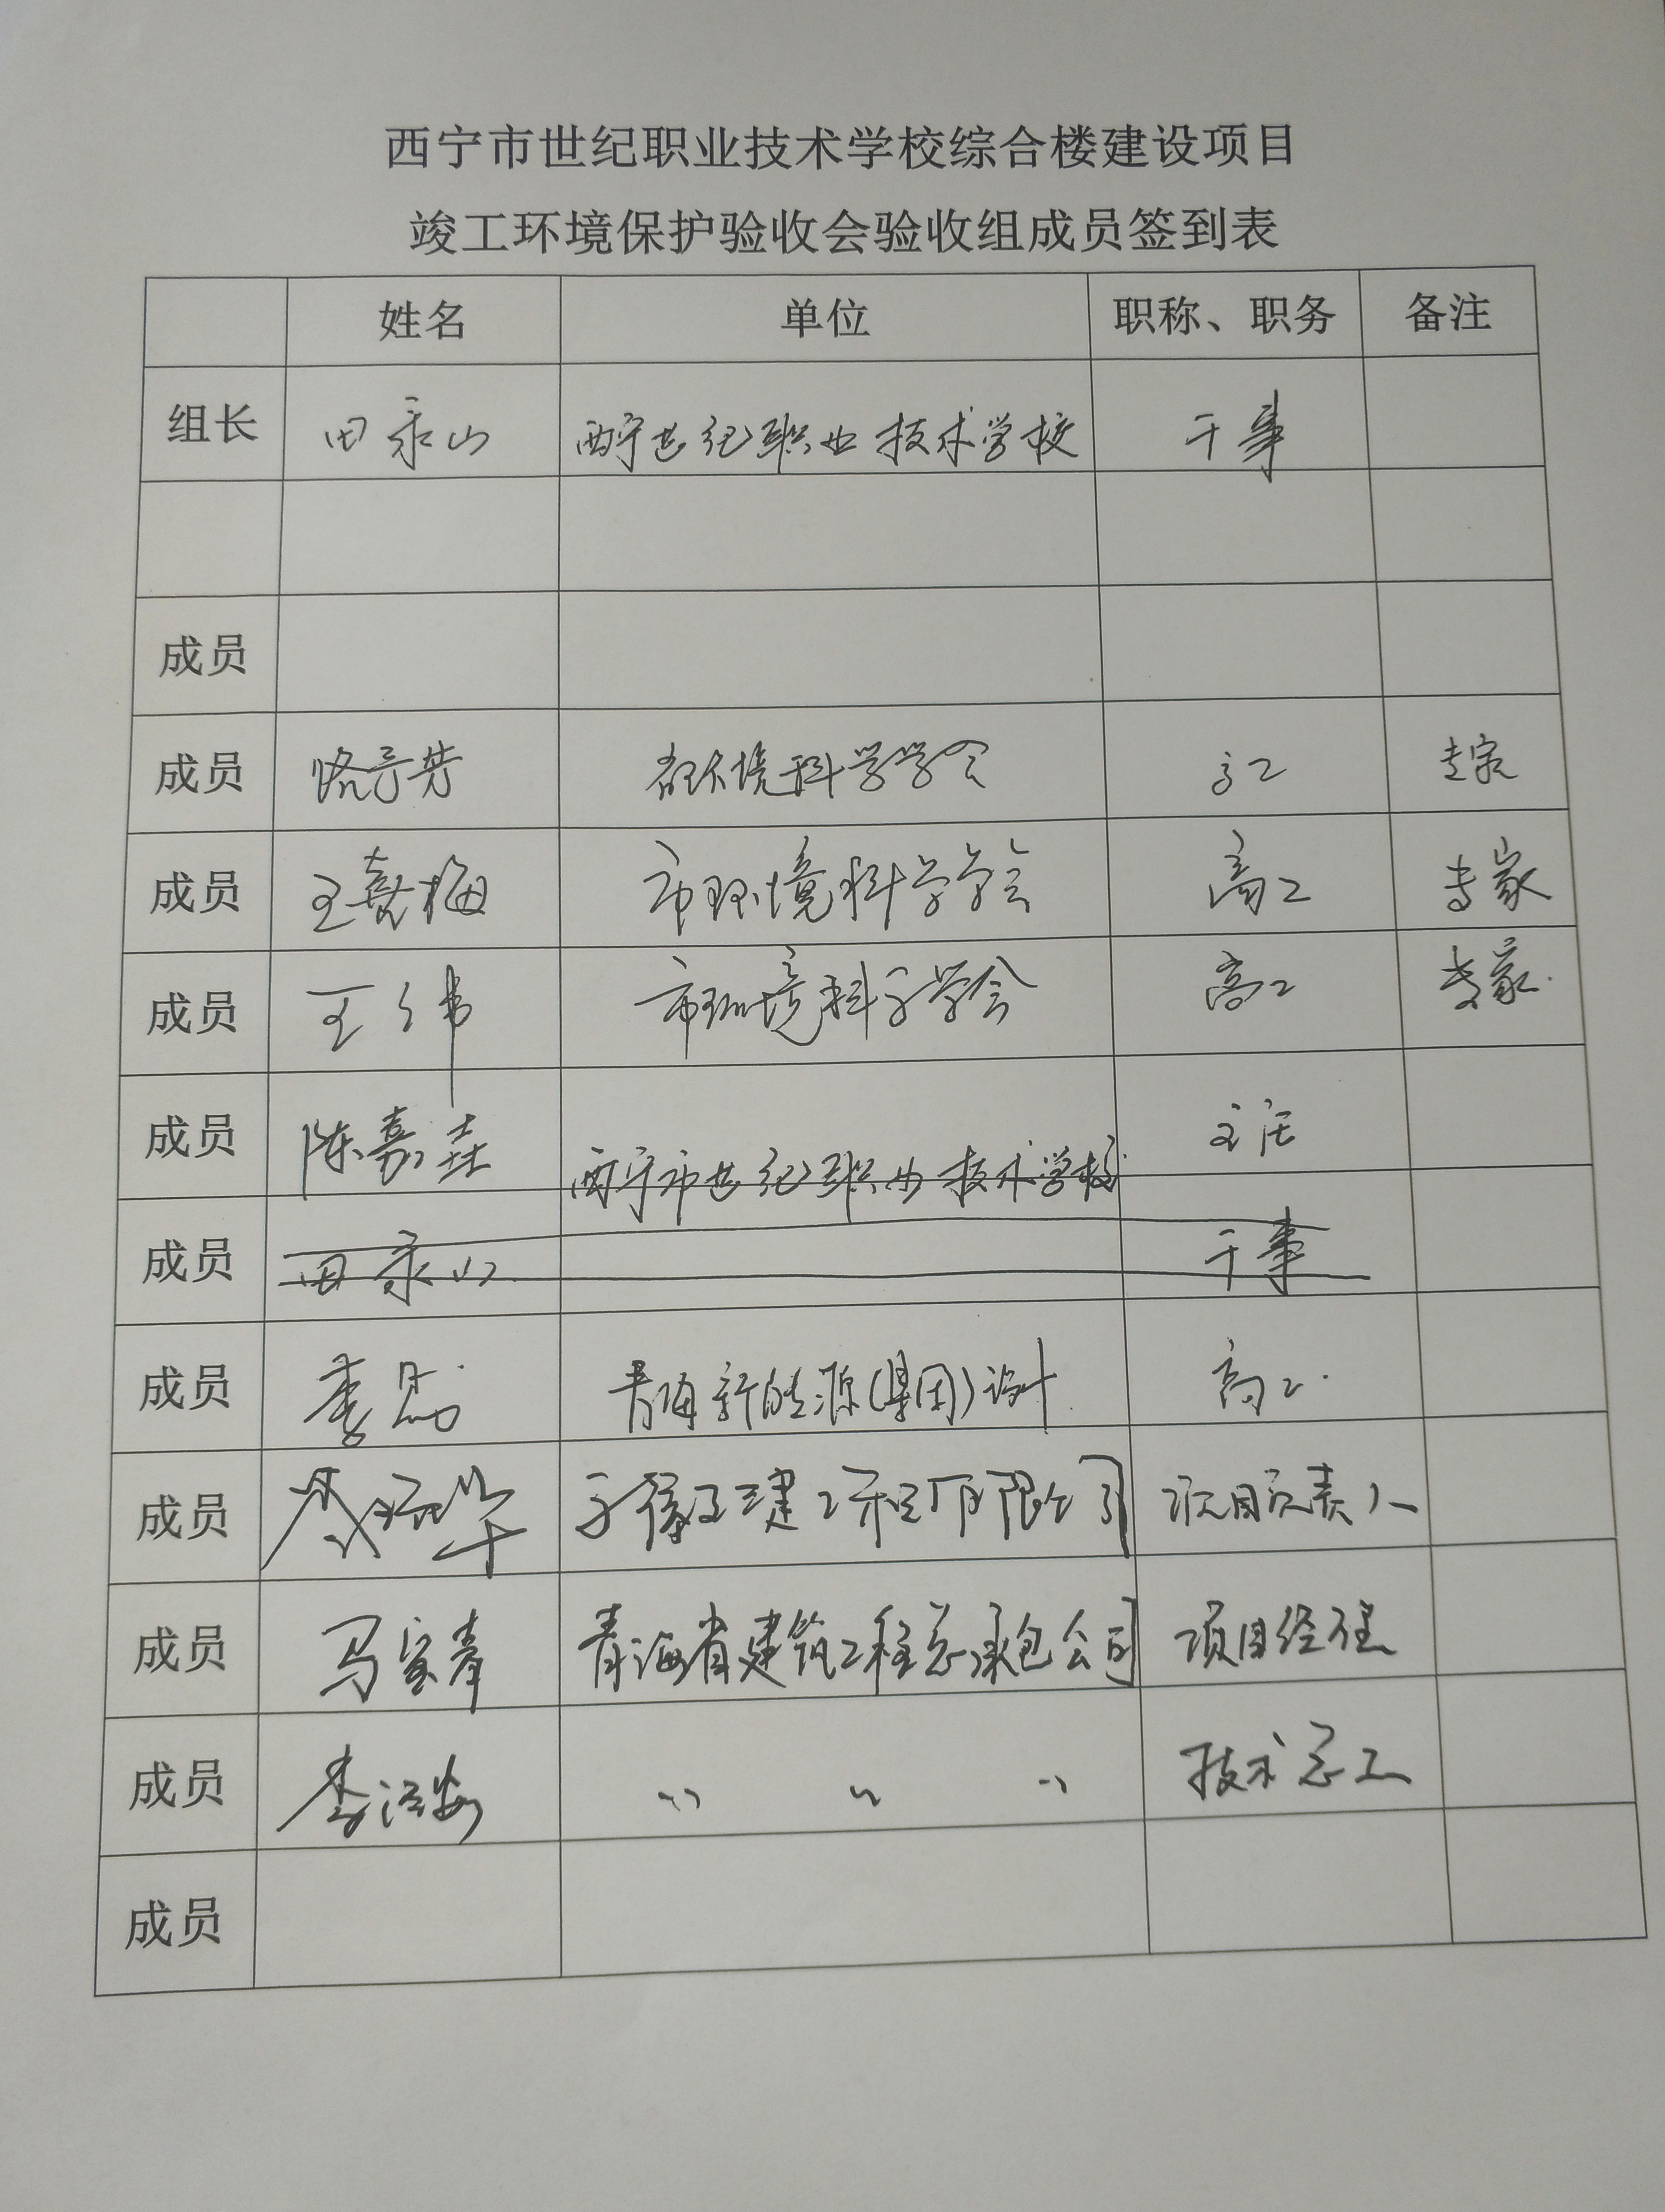 西宁市世纪职业技术学校综合楼建设项目
竣工环境保护验收会验收组成员签到表
姓名 单位 职称、职务 备注
组长 田永山 西宁世纪职业技术学校 干事
成员
成员 环境科学学会 高工 专家
成员 王喜梅 市环境科学学会 高工 专家
成员 王伟 市环境科学学会 高工 专家
成员 陈嘉 西宁市世纪职业技术学校 主任
成员 田永山 干事
成员 李 青海新能源(集团)设计 高工
成员 建工程有限公司 项目负责人
成员 马 青海省建筑工程总承包公司 项目经理
成员 李 〃 〃 〃 技术总工
成员